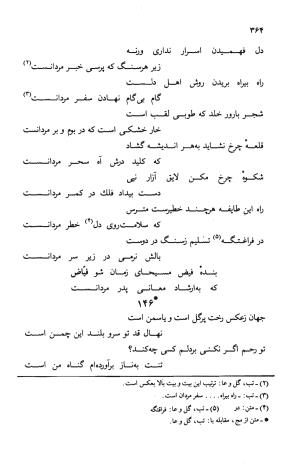 ۳۶۴
دل فهمیدن اسرار نداری ورنه
زیر هرسنگ که پرسی خبر مردانست(۲)
راه بیراه بریدن روش اهل دلست
گام بی‌گام نهادن سفر مردانست(۳)
شجر بارور خلد که طوبی لقب است
خار خشکی است که در بوم و بر مردانست
قلعهٔ چرخ نشاید به‌هر اندیشه گشاد
که کلید درش آه سحر مردانست
شکوهٔ چرخ مکن لایق آزار نیی
دست بیداد فلك در کمر مردانست
راه این طایفه هرچند خطیرست مترس
که سلامت‌روی دل(۴) خطر مردانست
در فراغتگه(۵) تسلیم زسنگ در دوست
بالش نرمی در زیر سر مردانست
بندهٔ فیض مسیحای زمان شو فیاض
که به‌ارشاد معانی پدر مردانست
۱۴۶*
جهان زعکس رخت پرگل است و یاسمن است
نهال قد تو سرو بلند این چمن است
تو رحم اگر نکنی بردلم کسی چه‌کند؟
تنت به‌ناز برآورده‌ام گناه من است
(۲)- تب، گل و عا: ترتیب این بیت و بیت بالا بعکس است.
(۳)- تب: راه بیراه.... سفر مردان است.
(۴)- متن: در (۵)- تب، گل و عا: فراقتگه
*- متن از مج، مقابله با: تب، گل و عا.